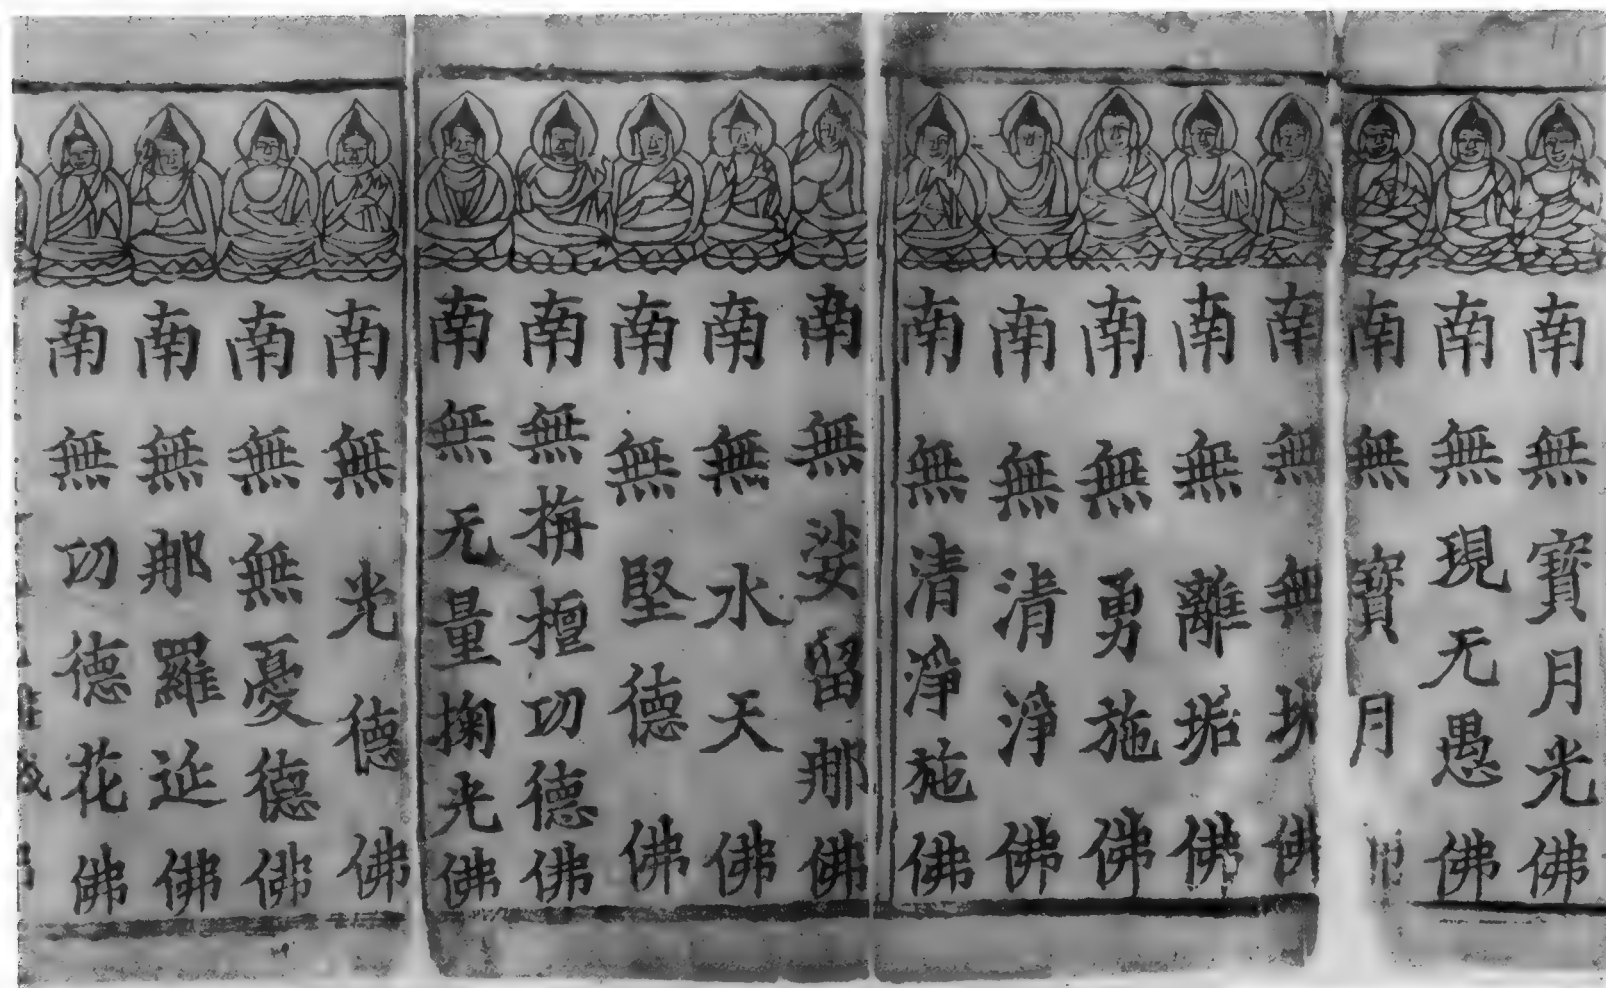 南無寶月光佛
南無現无愚佛
南無寶月佛
南無無垢佛
南無離垢佛
南無勇施佛
南無清淨佛
南無清淨施佛
南無娑留那佛
南無水天佛
南無堅德佛
南無栴檀功德佛
南無无量掬光佛
南無光德佛
南無無憂德佛
南無那羅延佛
南無功德花佛